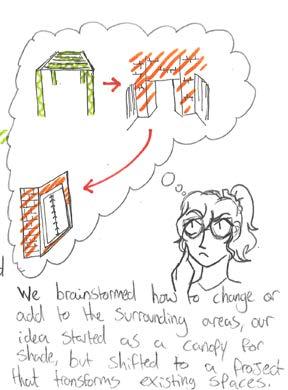 We brainstormed how to change or
add to the surrounding areas, our
idea started as a canopy for
shade, but shifted to a project
that transforms existing spaces.